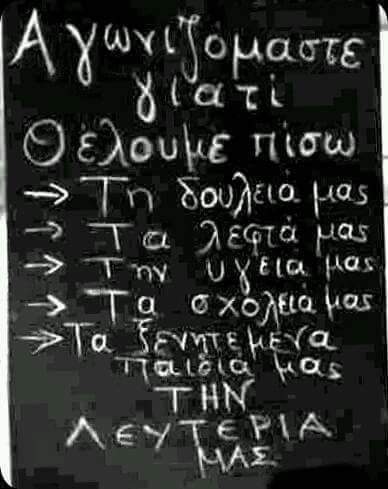 Αγωνιζόμαστε
γιατί
Θέλουμε πίσω
→ Τη δουλειά μας
→ Τα λεφτά μας
→ Την υγεία μας
→ Τα σχολειά μας
→ Τα ξενητεμένα
παιδιά μας
ΤΗΝ
ΛΕΥΤΕΡΙΑ
ΜΑΣ